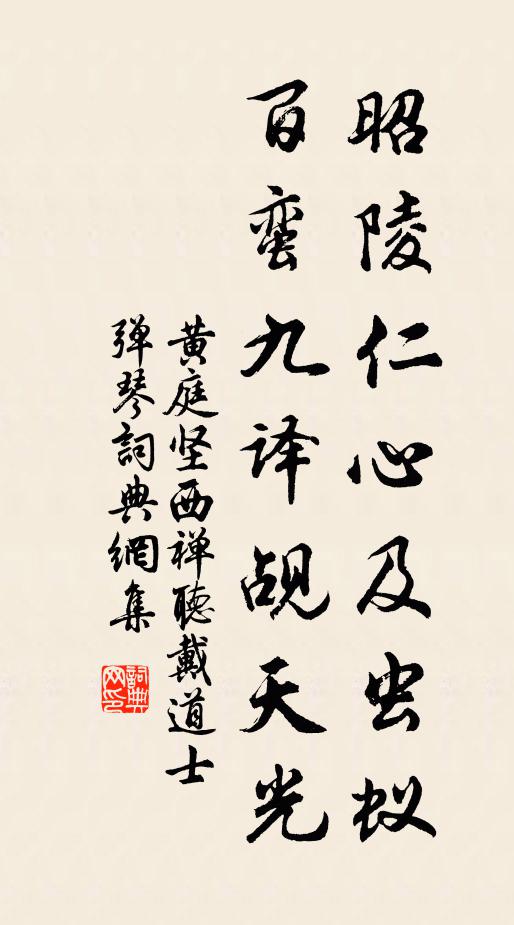 昭陵仁心及虫蚁
百蛮九译觇天光
黄庭坚西禅聽戴道士
弹琴詞典網集
詞典
网印